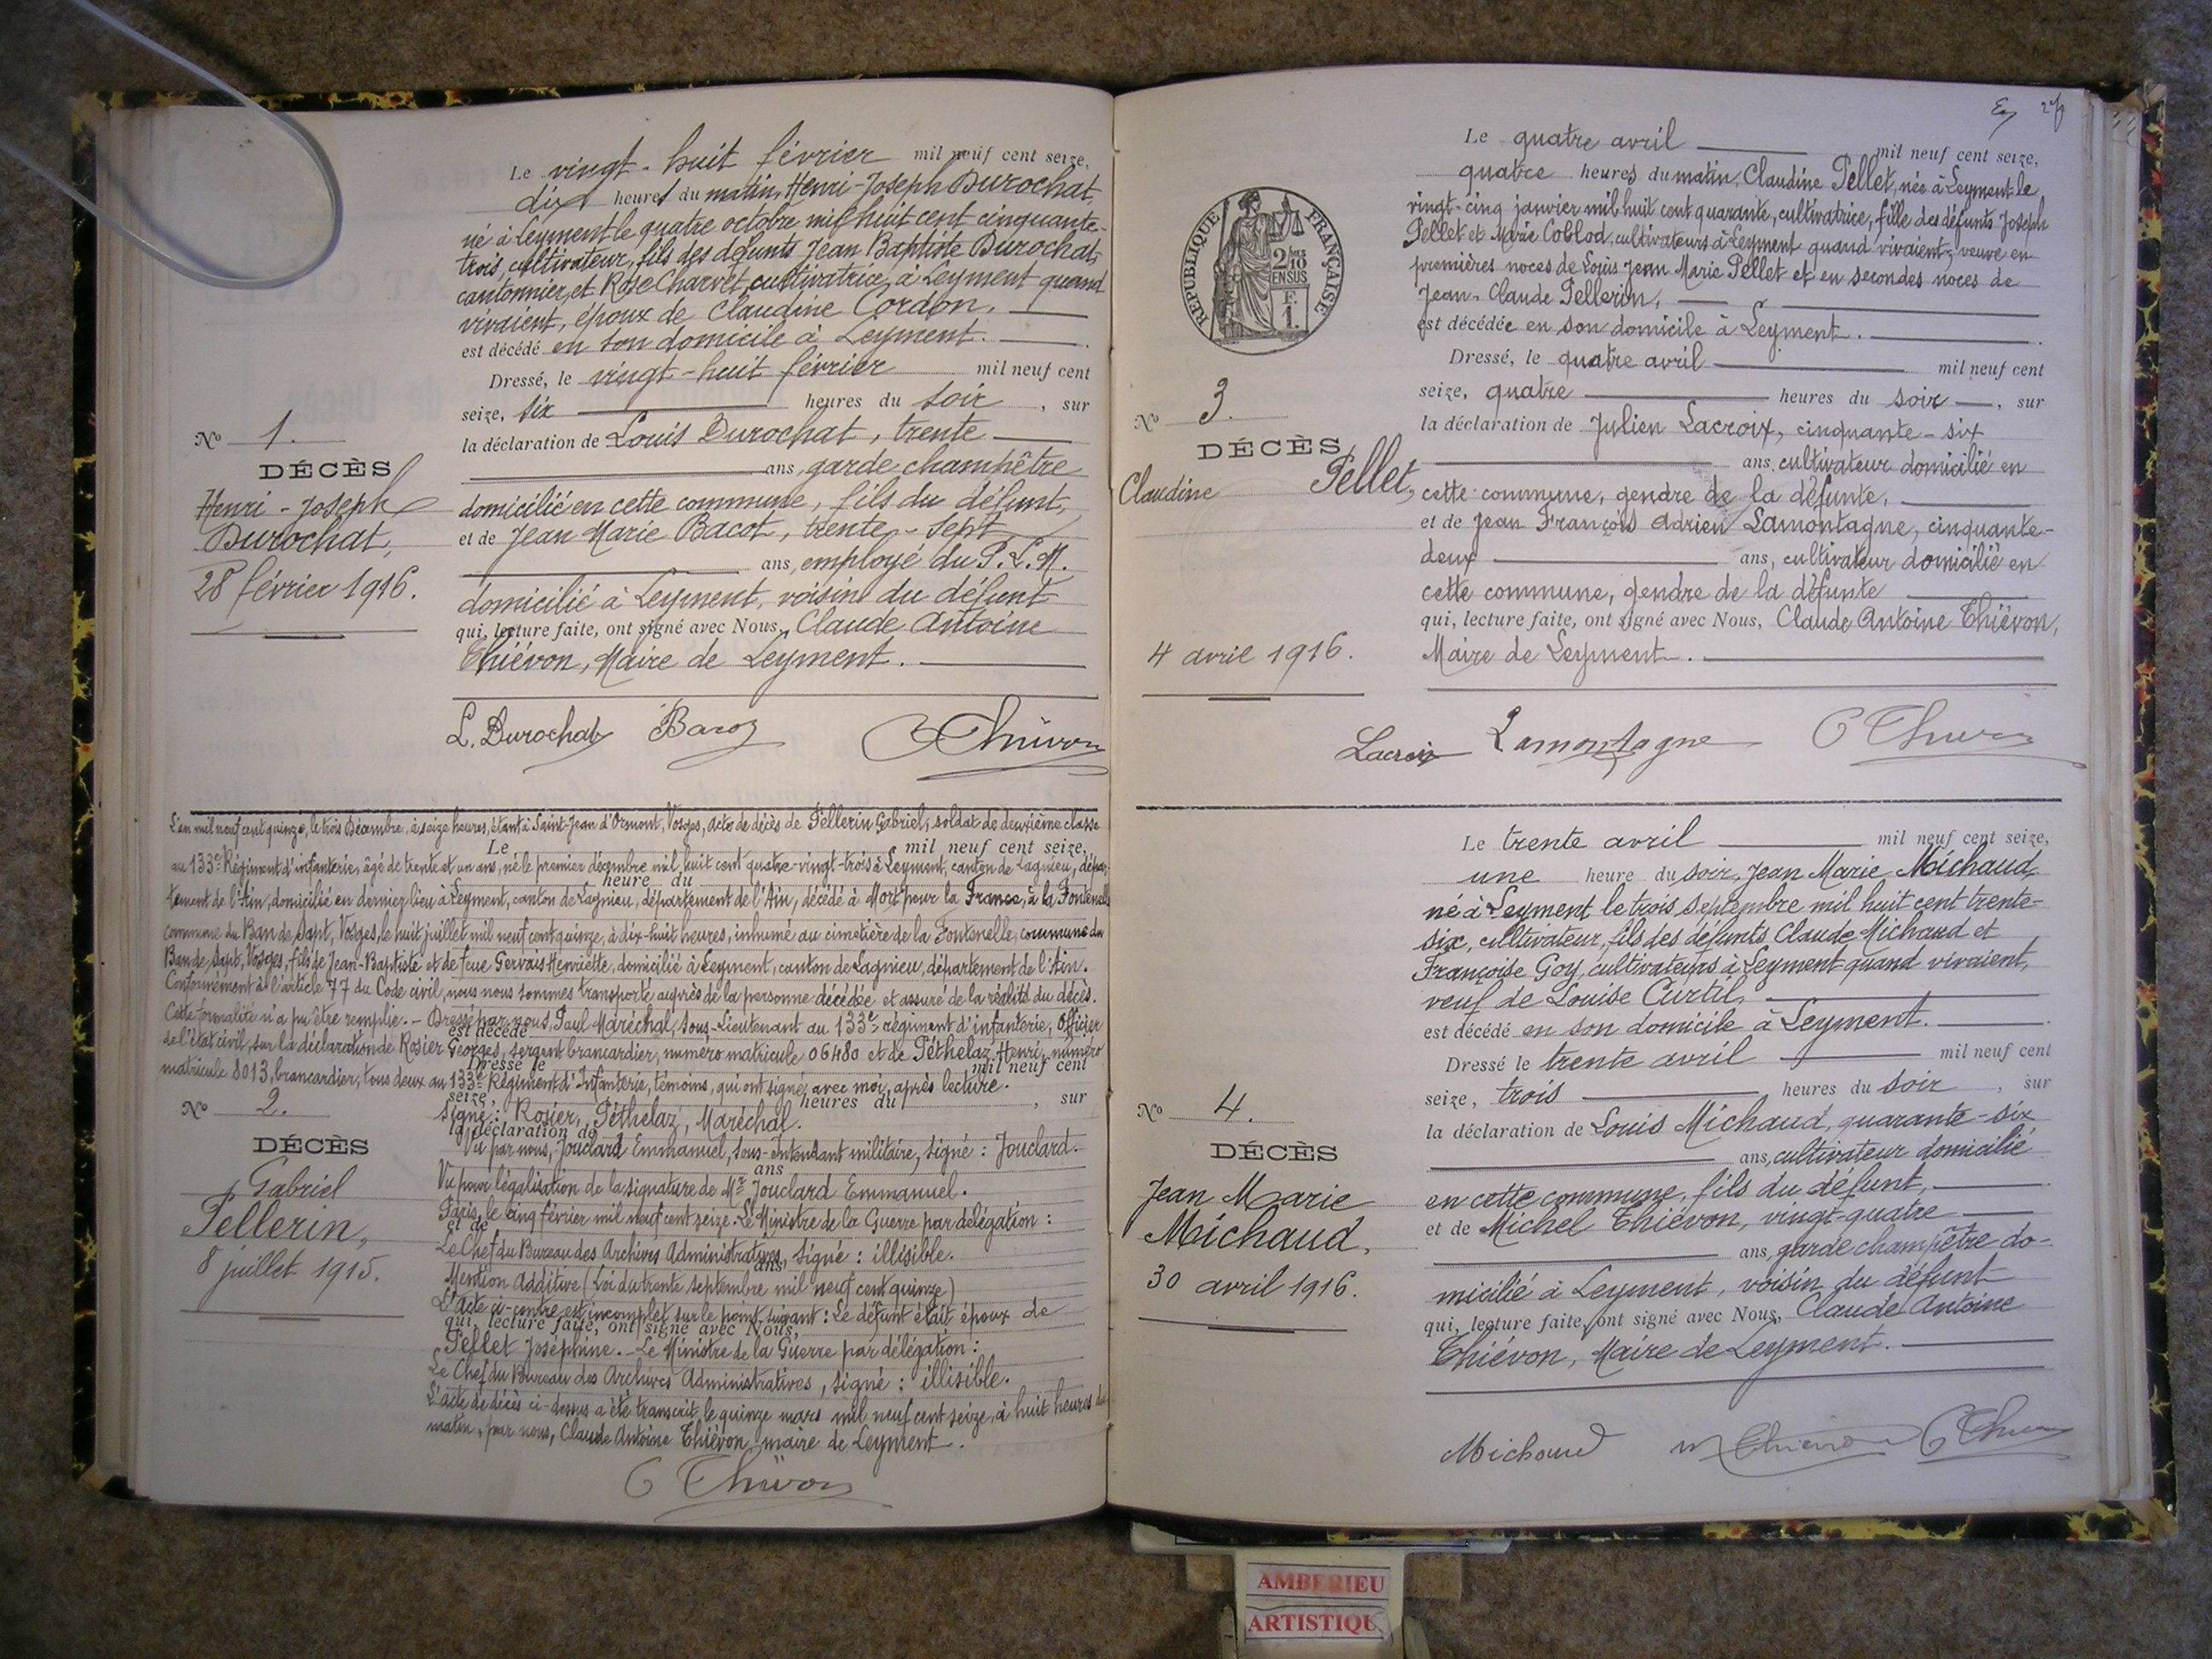 Le vingt-huit février mil neuf cent seize,
dix heures du matin, Henri-Joseph Durochat,
né à Leyment le quatre octobre mil huit cent cinquante-
trois, cultivateur, fils des défunts Jean Baptiste Durochat,
cantonnier, et Rose Charvet, cultivatrice, à Leyment quand
vivaient, époux de Claudine Cordon.
est décédé en son domicile à Leyment.
Dressé, le vingt-huit février mil neuf cent
seize, six heures du soir, sur
la déclaration de Louis Durochat, trente
ans, garde champêtre
domicilié en cette commune, fils du défunt,
et de Jean Marie Bacot, trente-sept
ans, employé du P. L. M.
domicilié à Leyment, voisin du défunt
qui, lecture faite, ont signé avec Nous, Claude Antoine
Thiévon, Maire de Leyment.
No 1.
DÉCÈS
Henri-Joseph
Durochat,
28 février 1916.
L. Durochat Bacot C Thiévon
L'an mil neuf cent quinze, le trois Décembre, à seize heures, étant à Saint-Jean d'Ormont, Vosges, acte de décès de Pellerin Gabriel, soldat de deuxième classe
Le mil neuf cent seize,
au 133e Régiment d'infanterie, âgé de trente et un ans, né le premier décembre mil huit cent quatre-vingt-trois à Leyment, canton de Lagnieu, dépar-
heure du
tement de l'Ain, domicilié en dernier lieu à Leyment, canton de Lagnieu, département de l'Ain, décédé à Mort pour la France, à la Fontenelle
commune du Ban de Sapt, Vosges, le huit juillet mil neuf cent quinze, à dix-huit heures, inhumé au cimetière de la Fontenelle, commune du
Ban de Sapt, Vosges, fils de Jean-Baptiste et de feue Gervais Henriette, domicilié à Leyment, canton de Lagnieu, département de l'Ain.
Conformément à l'article 77 du Code civil, nous nous sommes transporté auprès de la personne décédée et assuré de la réalité du décès.
Cette formalité n'a pu être remplie. - Dressé par nous, Paul Maréchal, Sous-Lieutenant au 133e régiment d'infanterie, Officier
est décédé
de l'état civil, sur la déclaration de Rosier Georges, sergent brancardier, numéro matricule 06480 et de Péthelaz Henri, numéro
Dressé le mil neuf cent
matricule 8013, brancardier, tous deux au 133e Régiment d'Infanterie, témoins, qui ont signé avec moi, après lecture.
seize, heures du , sur
Signé: Rosier, Péthelaz, Maréchal.
la déclaration de
Vu par nous, Jouclard Emmanuel, Sous-Intendant militaire, signé: Jouclard.
ans
Vu pour légalisation de la signature de Mr Jouclard Emmanuel.
Paris, le cinq février mil neuf cent seize. Le Ministre de la Guerre par délégation:
et de
Le Chef du Bureau des Archives Administratives, signé: illisible.
ans,
Mention Additive (Loi du trente septembre mil neuf cent quinze)
L'acte ci-contre est incomplet sur le point suivant: Le défunt était époux de
qui, lecture faite, ont signé avec Nous,
Pellet Joséphine. - Le Ministre de la Guerre par délégation:
Le Chef du Bureau des Archives Administratives, signé: illisible.
L'acte de décès ci-dessus a été transcrit le quinze mars mil neuf cent seize, à huit heures du
matin, par nous, Claude Antoine Thiévon, maire de Leyment.
C Thiévon
No 2.
DÉCÈS
Gabriel
Pellerin,
8 juillet 1915.
Le quatre avril mil neuf cent seize,
quatre heures du matin, Claudine Pellet, née à Leyment le
vingt-cinq janvier mil huit cent quarante, cultivatrice, fille des défunts Joseph
Pellet et Marie Coblod, cultivateurs à Leyment quand vivaient, veuve en
premières noces de Louis Jean Marie Pellet et en secondes noces de
Jean-Claude Pellerin,
est décédée en son domicile à Leyment.
Dressé, le quatre avril mil neuf cent
seize, quatre heures du soir, sur
la déclaration de Julien Lacroix, cinquante-six
ans, cultivateur domicilié en
cette commune, gendre de la défunte,
et de Jean François Adrien Lamontagne, cinquante-
deux ans, cultivateur domicilié en
cette commune, gendre de la défunte
qui, lecture faite, ont signé avec Nous, Claude Antoine Thiévon,
Maire de Leyment.
RÉPUBLIQUE FRANÇAISE
2/10
EN SUS
F.
1.
No 3.
DÉCÈS
Claudine Pellet,
4 avril 1916.
Lacroix Lamontagne C Thiévon
Le trente avril mil neuf cent seize,
une heure du soir, Jean Marie Michaud,
né à Leyment le trois septembre mil huit cent trente-
six, cultivateur, fils des défunts Claude Michaud et
Françoise Goy, cultivateurs à Leyment quand vivaient,
veuf de Louise Curtil,
est décédé en son domicile à Leyment.
Dressé le trente avril mil neuf cent
seize, trois heures du soir, sur
la déclaration de Louis Michaud, quarante-six
ans, cultivateur domicilié
en cette commune, fils du défunt,
et de Michel Thiévon, vingt-quatre
ans, garde champêtre do-
micilié à Leyment, voisin du défunt
qui, lecture faite, ont signé avec Nous, Claude Antoine
Thiévon, Maire de Leyment.
No 4.
DÉCÈS
Jean Marie
Michaud,
30 avril 1916.
Michaud M Thiévon C Thiévon
AMBERIEU
ARTISTIQU